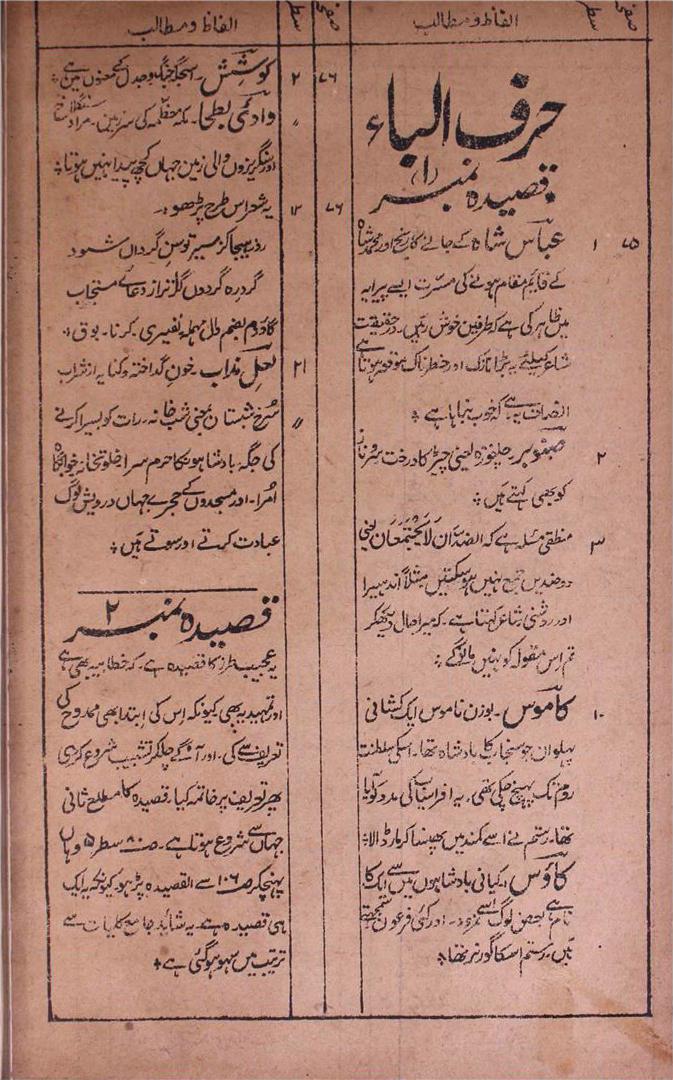 صفحہ سطر الفاظ و مطالب
حرف الباء
قصیدہ نمبر (۱)
۷۵ ۱ عباس شاہ کے جانے کا رنج اور محمد شاہ
کے قایم مقام ہونے کی مسرت ایسے پیرایہ
میں ظاہر کی ہے کہ طرفین خوش رہیں۔ درحقیقت
شاعر کیلئے یہ بڑا نازک اور خطرناک موقعہ ہوتا ہے
انصاف یہ ہے کہ خوب نبھایا ہے ؞
۲ صنوبر۔ چلغوزہ یعنی چیڑ کا درخت سرو ناز
کو بھی کہتے ہیں ؞
۳ منطقی مسئلہ ہے کہ الضدان لا یجتمعان یعنی
دو ضدیں جمع نہیں ہو سکتیں مثلاً اندہیرا
اور روشنی شاعر کہتا ہے۔ کہ میرا حال دیکھکر
تم اس مقولہ کو نہیں مانو گے ؞
۱۰ کاموس۔ بوزن ناموس ایک کشانی
پہلوان جو سنجاب کا بادشاہ تھا۔ اسکی سلطنت
روم تک پہنچ چکی تھی۔ یہ افراسیاب کی مدد کو آیا
تھا۔ رستم نے اسے کمند میں پھنسا کر مار ڈالا ؞
کاؤس۔ کیانی بادشاہوں میں سے ایک کا
نام ہے بعض لوگ اسے نمرود۔ اور کئی فرعون سمجھتے
ہیں۔ رستم اسکا گورنر تھا ؞
صفحہ سطر الفاظ و مطالب
۷۶ ۲ کوشش۔ اسجگہ جنگ و جدل کے معنوں میں ہے ؞
〃 وادئی بطحا۔ مکہ معظمہ کی سرزمین۔ مراد سنگلاخ
اور سنگریزوں والی زمین جہاں کچھ پیدا نہیں ہوتا ؞
۷۶ ۱۳ یہ شعر اس طرح پڑھو۔
روز ہیجا کز مسیر توسن گرداں شود
گردرہ گردوں گذر راز دعائے مستجاب
گاؤدم بضم دال مہملہ نفیری۔ کرنا۔ بوق ؞
۲۱ لعل مذاب۔ خون گداختہ و کنایہ از شراب
〃 سرخ شبستان بمعنی شب خانہ۔ رات کو بسیرا کرنے
کی جگہ بادشاہونکا حرم سرا خلوتخانہ خوابگاہ
امرا۔ اور مسجدوں کے حجرے جہاں درویش لوگ
عبادت کرتے اور سوتے ہیں ؞
قصیدہ نمبر ۲
یہ عجیب طرز کا قصیدہ ہے۔ کہ خطابیہ بھی ہے
اور تمہیدیہ بھی کیونکہ اس کی ابتدا بھی ممدوح کی
تعریف سے کی۔ اور آگے چلکر تشبیب شروع کردی
پھر تعریف پر خاتمہ کیا۔ قصیدہ کا مطلع ثانی
جہاں سے شروع ہوتا ہے۔ ص۸۰ سطر ۵ وہاں
پہنچکر ص۱۰۶ سے القصیدہ پڑہو۔ کیونکہ یہ ایک
ہی قصیدہ ہے۔ یہ شاید جامع کلیات سے
ترتیب میں سہو ہو گئی ہے ؞